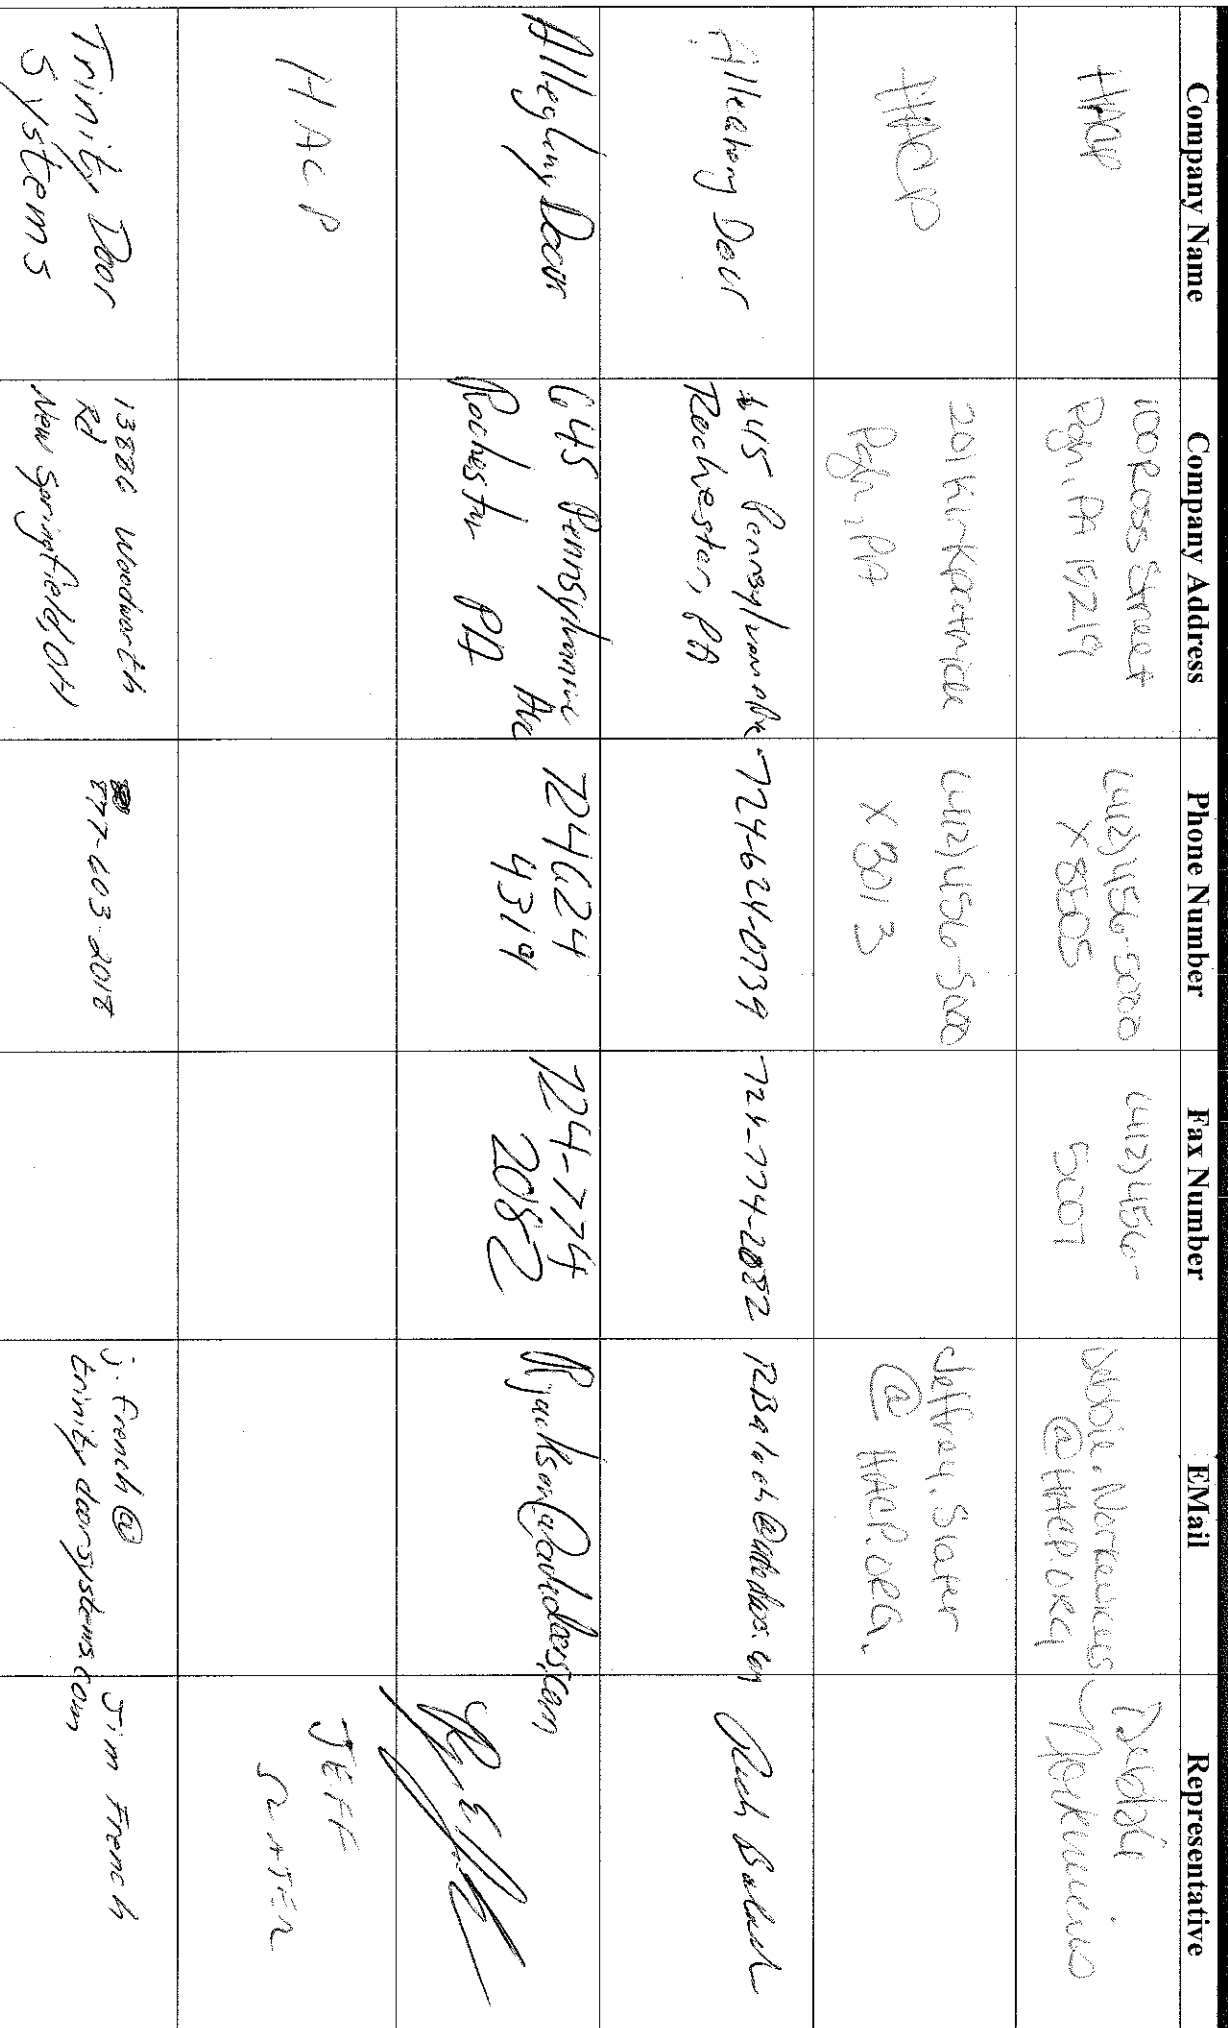 Company Name
Company Address
Phone Number
Fax Number
EMail
Representative
HACP
100 Ross Street
Pgh, PA 15219
(412) 456-5000
X 8505
(412) 456-
5007
@HACP.ORG
Debbie
HACP
201 Kirkpatrick
Pgh, PA
(412) 456-5000
X 3013
Jeffrey.Slater
@ HACP.ORG.
Allegheny Door
645 Pennsylvania Ave
Rochester, PA
724-624-0739
724-774-2082
Rich Balash
Allegheny Door
645 Pennsylvania Ave
Rochester PA
724624
4319
724-774
2082
HACP
JEFF
SLATER
Trinity Door
Systems
13886 Woodworth
Rd
New Springfield, OH
877-603-2018
j.french@
trinitydoorsystems.com
Jim French